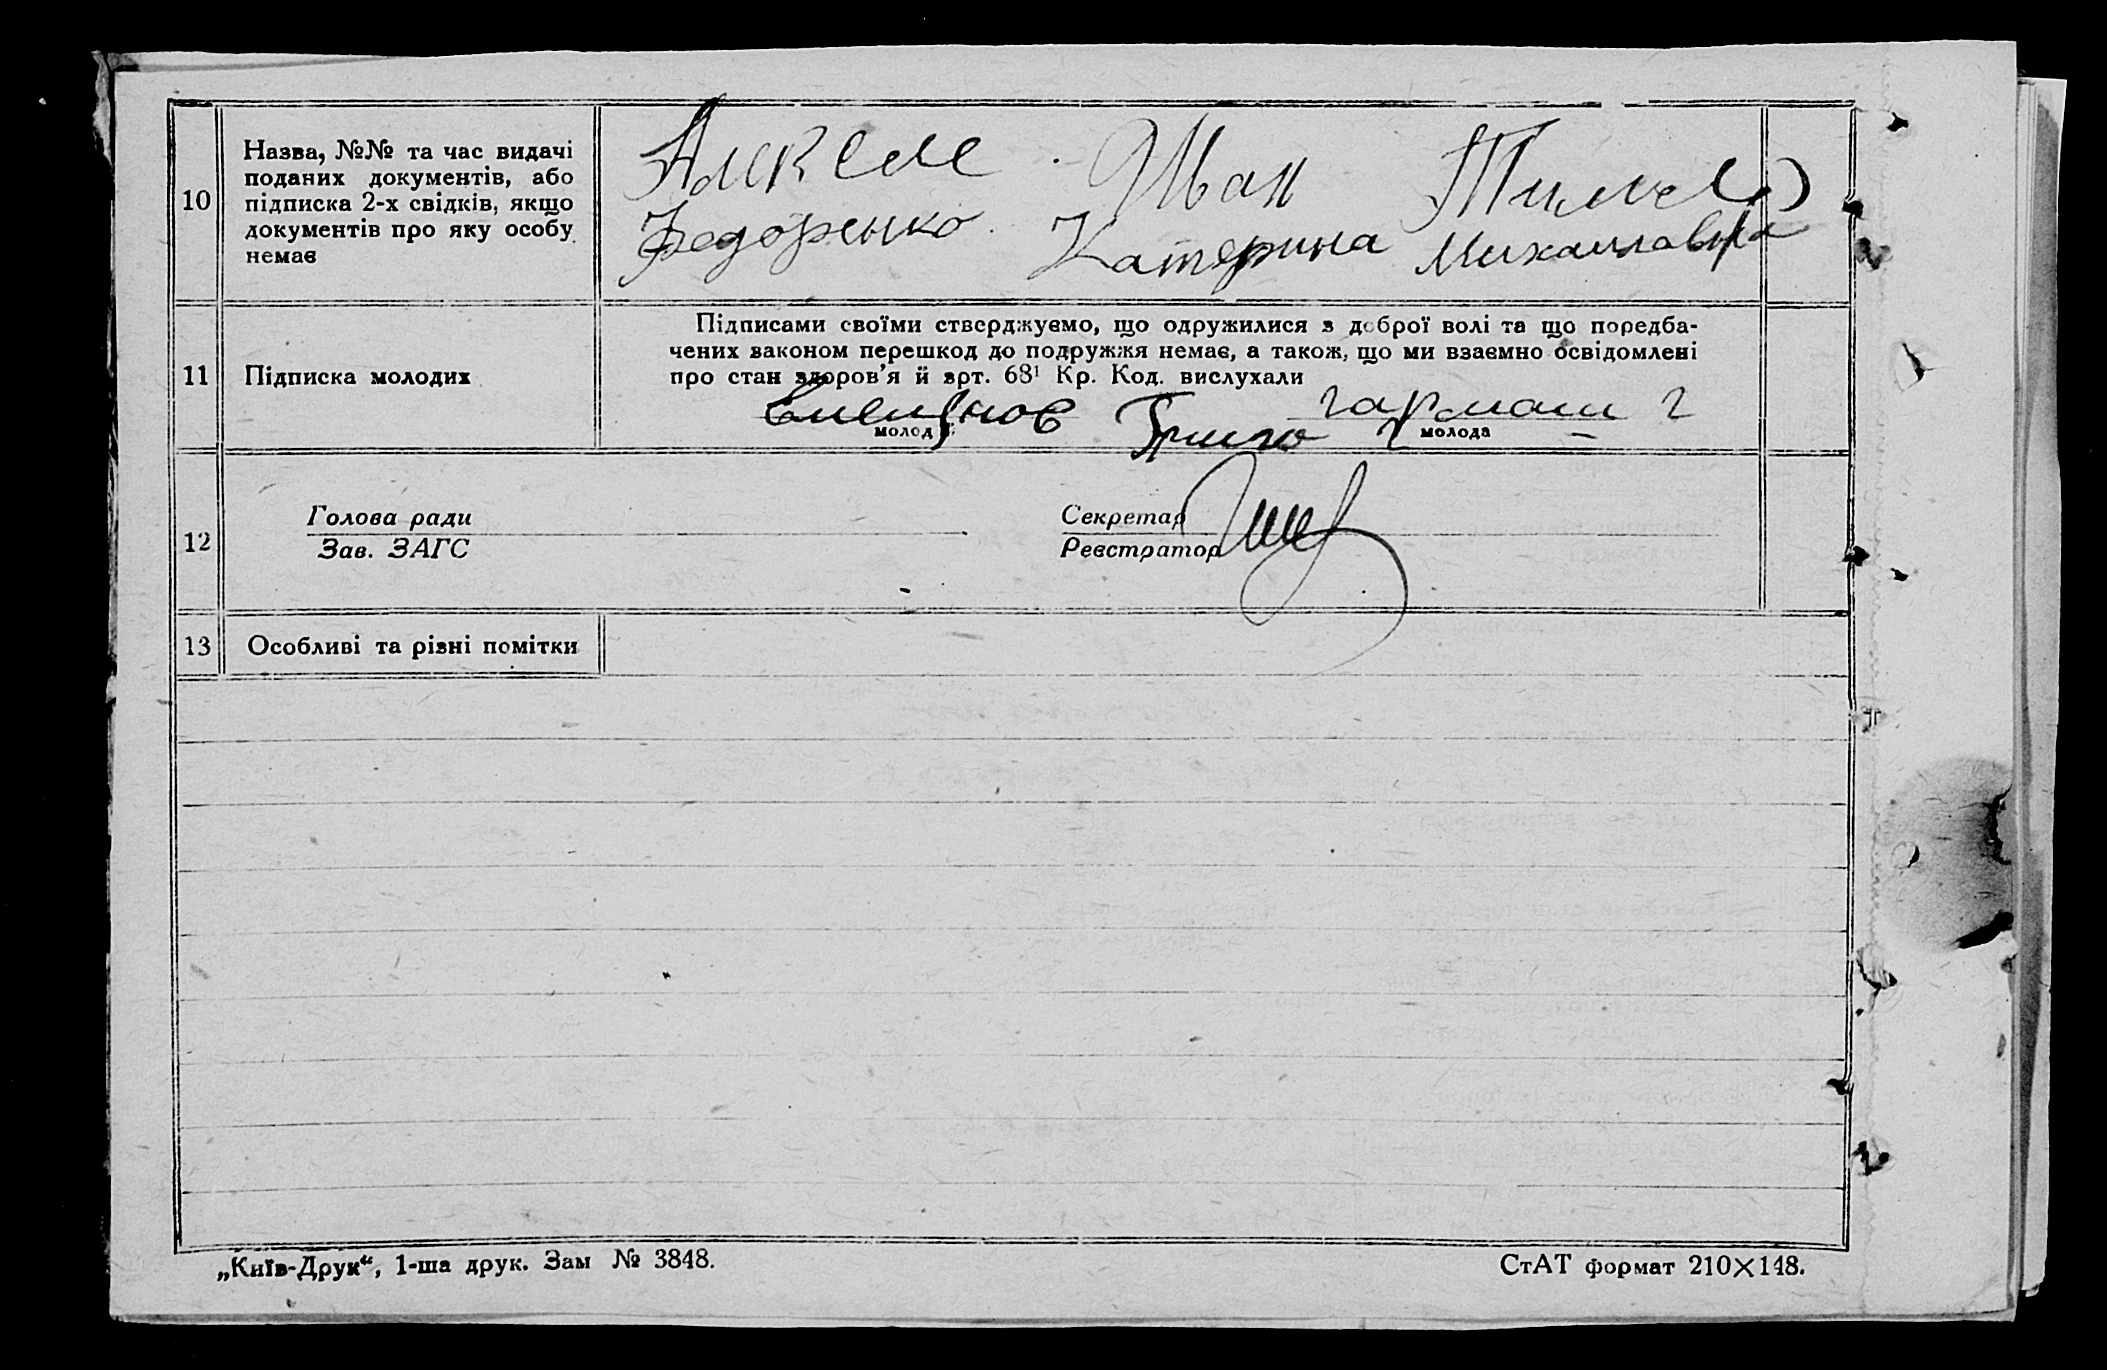 10
Назва, №№ та час видачі
поданих документів, або
підписка 2-х свідків, якщо
документів про яку особу
немає
Иван
Федоренко Катерина Михайлавна
11
Підписка молодих
Підписами своїми стверджуємо, що одружилися з доброї волі та що поредба-
чених законом перешкод до подружжя немає, а також, що ми взаємно освідомлені
про стан здоров'я й арт. 68¹ Кр. Код. вислухали
гармаш г
молод
молода
12
Голова ради
Зав. ЗАГС
Секретар
Реєстратор
13
Особливі та різні помітки
„Київ-Друк“, 1-ша друк. Зам № 3848.
СтАТ формат 210×148.